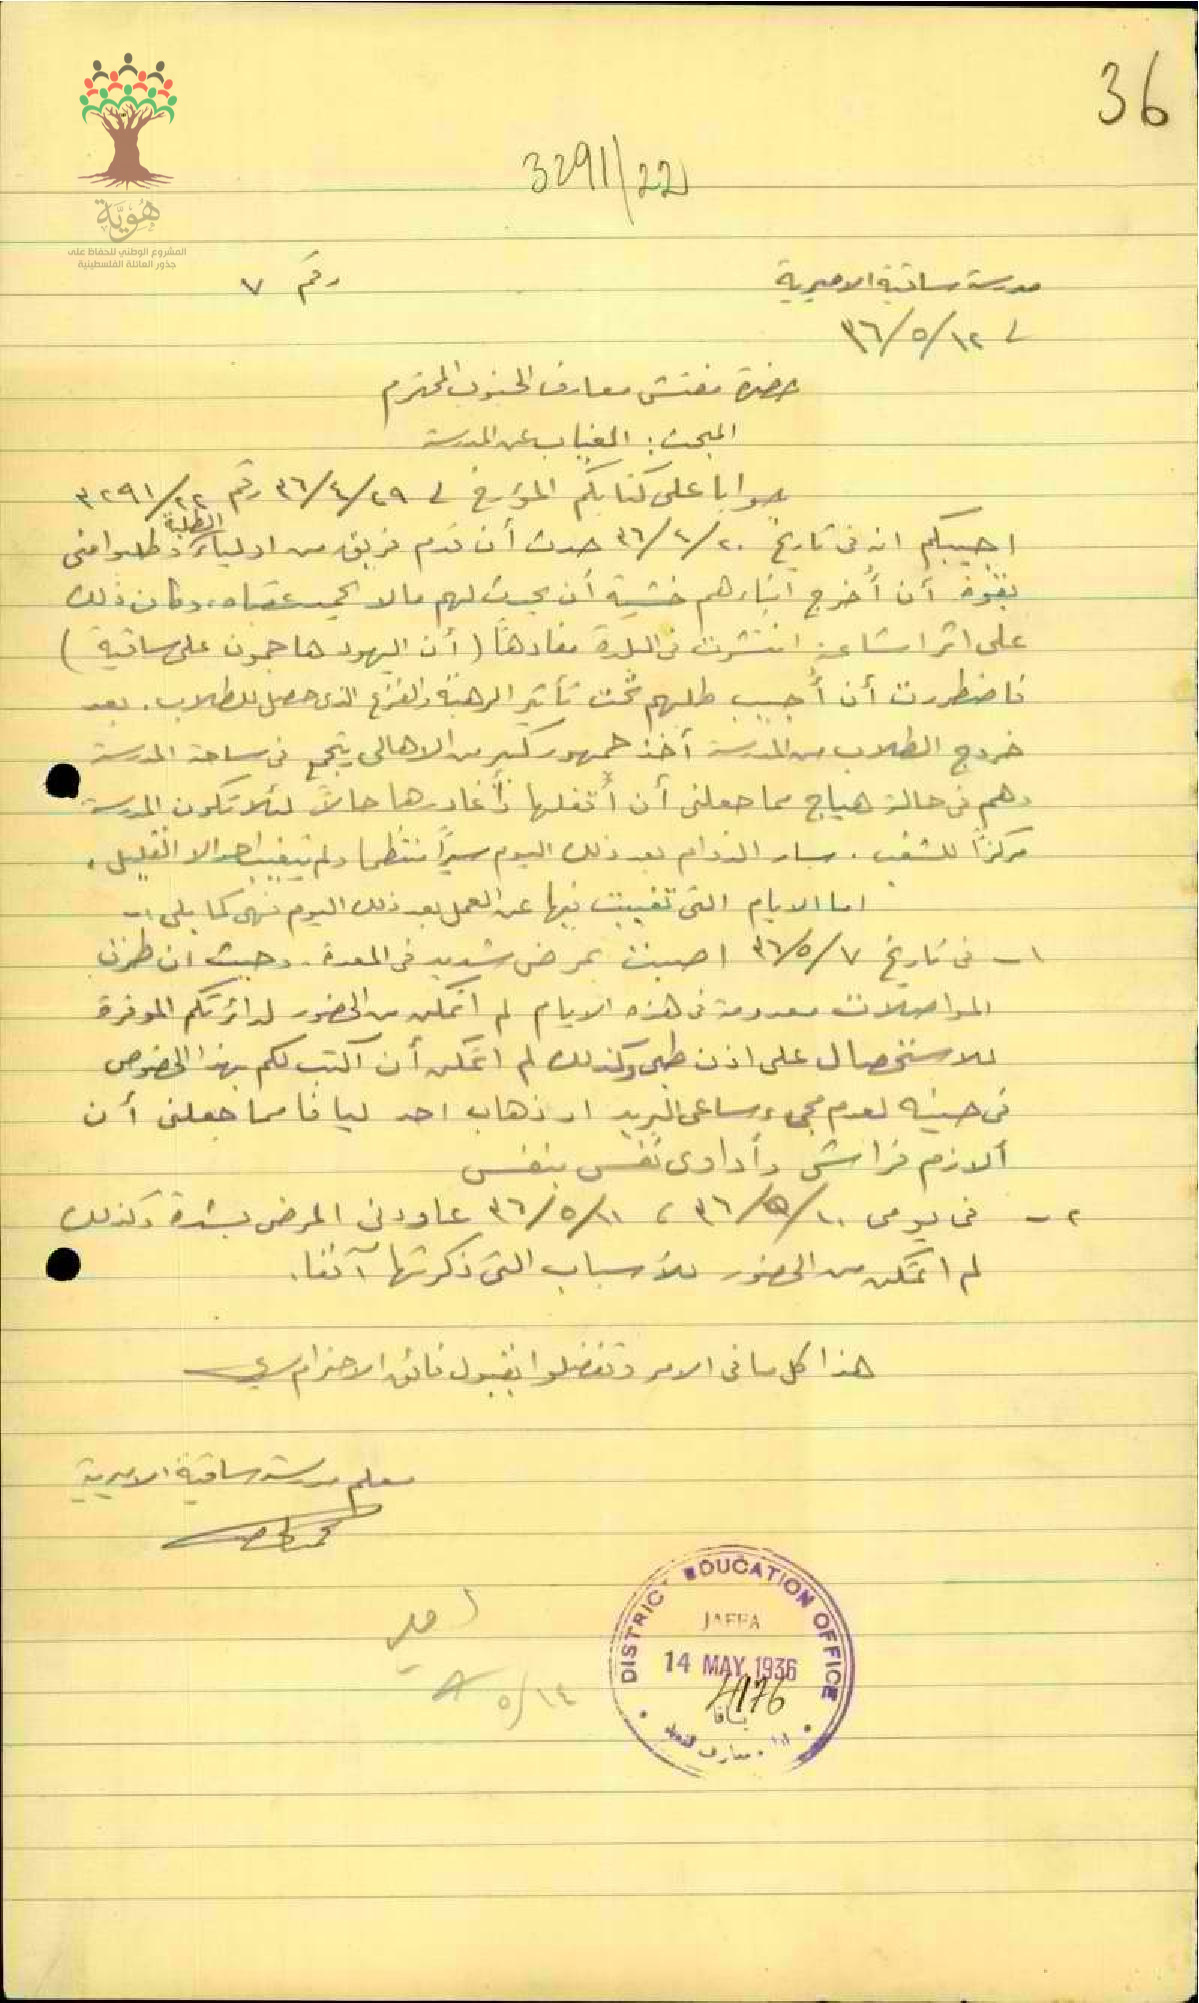 36
3291/22
هُوِيَّة
المشروع الوطني للحفاظ على
جذور العائلة الفلسطينية
مدرسة ساقية الاميرية
رقم ٧
في ١٢/٥/٣٦
حضرة مفتش معارف الجنوب المحترم
المبحث: الغياب عن المدرسة
جوابا على كتابكم المؤرخ في ٢٩/٤/٣٦ رقم ٣٢٩١/٢٢
اجيبكم انه في تاريخ ٢٠/٤/٣٦ حدث أن قدم فريق من اولياء الطلبة وطلبوا مني
بقوة أن أخرج ابناءهم خشية أن يحدث لهم مالا تحمد عقباه، وكان ذلك
على اثر اشاعة انتشرت في البلدة مفادها (أن اليهود هاجمون على ساقية)
فاضطررت أن أجيب طلبهم تحت تأثير الرهبة والفزع الذي حصل للطلاب. بعد
خروج الطلاب من المدرسة أخذ جمهور كبير من الاهالي يتجمع في ساحة المدرسة
وهم في حالة هياج مما جعلني أن أقفلها وأغادرها حالاً لئلا تكون المدرسة
مركزاً للشغب. سار الدوام بعد ذلك اليوم سيراً منتظما ولم يتغيب الا القليل.
اما الايام التي تغيبت فيها عن العمل بعد ذلك اليوم فهي كما يلي :-
١- في تاريخ ٧/٥/٣٦ اصبت بمرض شديد في المعدة. وحيث ان طرق
المواصلات معدومة في هذه الايام لم اتمكن من الحضور لدائرتكم الموقرة
للاستحصال على اذن طبي وكذلك لم اتمكن أن اكتب لكم بهذا الخصوص
في حينه لعدم مجيء ساعي البريد او ذهاب احد ليافا مما جعلني أن
ألازم فراشي وأداوي نفسي بنفسي
٢- في يومي ١٠/٥/٣٦ ، ١١/٥/٣٦ عاودني المرض بشدة وكذلك
لم اتمكن من الحضور للأسباب التي ذكرتها آنفا.
هذا كل ما في الامر وتفضلوا بقبول فائق الاحترام
معلم مدرسة ساقية الاميرية
DISTRICT EDUCATION OFFICE
JAFFA
14 MAY 1936
4176
يافا
١٤/٥